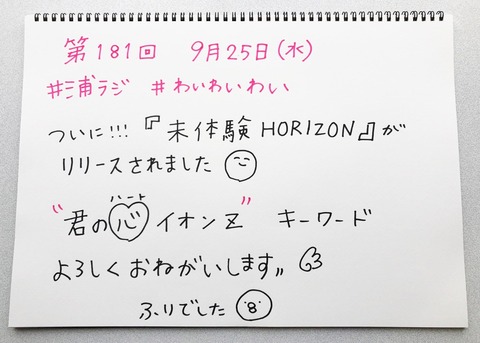 第181回 9月25日(水)
#三浦ラジ #わいわいわい
ついに!!!『未体験HORIZON』が
リリースされました
ハート
"君の心イオンZ" キーワード
よろしくおねがいします〃
ふりでした